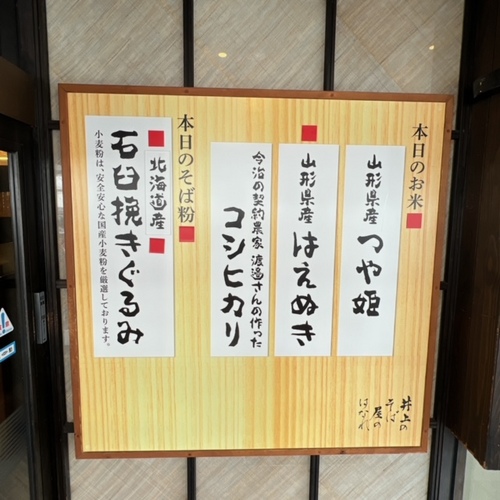 本日のお米
山形県産 つや姫
山形県産 はえぬき
今治の契約農家 渡邉さんの作った
コシヒカリ
本日のそば粉
北海道産
石臼挽きぐるみ
小麦粉は、安全安心な国産小麦粉を厳選しております。
井上の
そば
屋の
はなれ